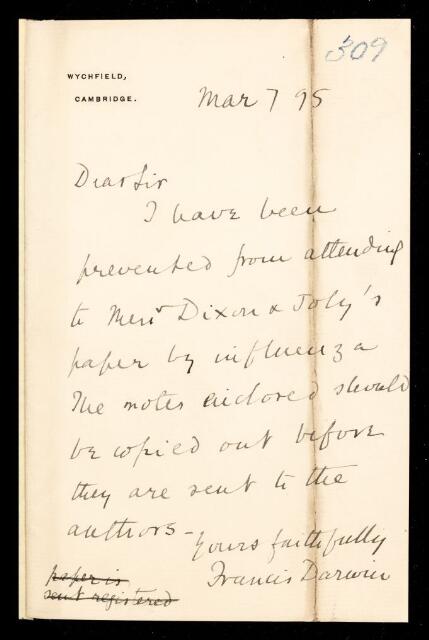 309
WYCHFIELD,
CAMBRIDGE.
Mar 7 95
Dear Sir
I have been
prevented from attending
to Messrs Dixon & Joly's
paper by influenza
The notes enclosed should
be copied out before
they are sent to the
authors -
Yours faithfully
Francis Darwin
paper is
sent registered